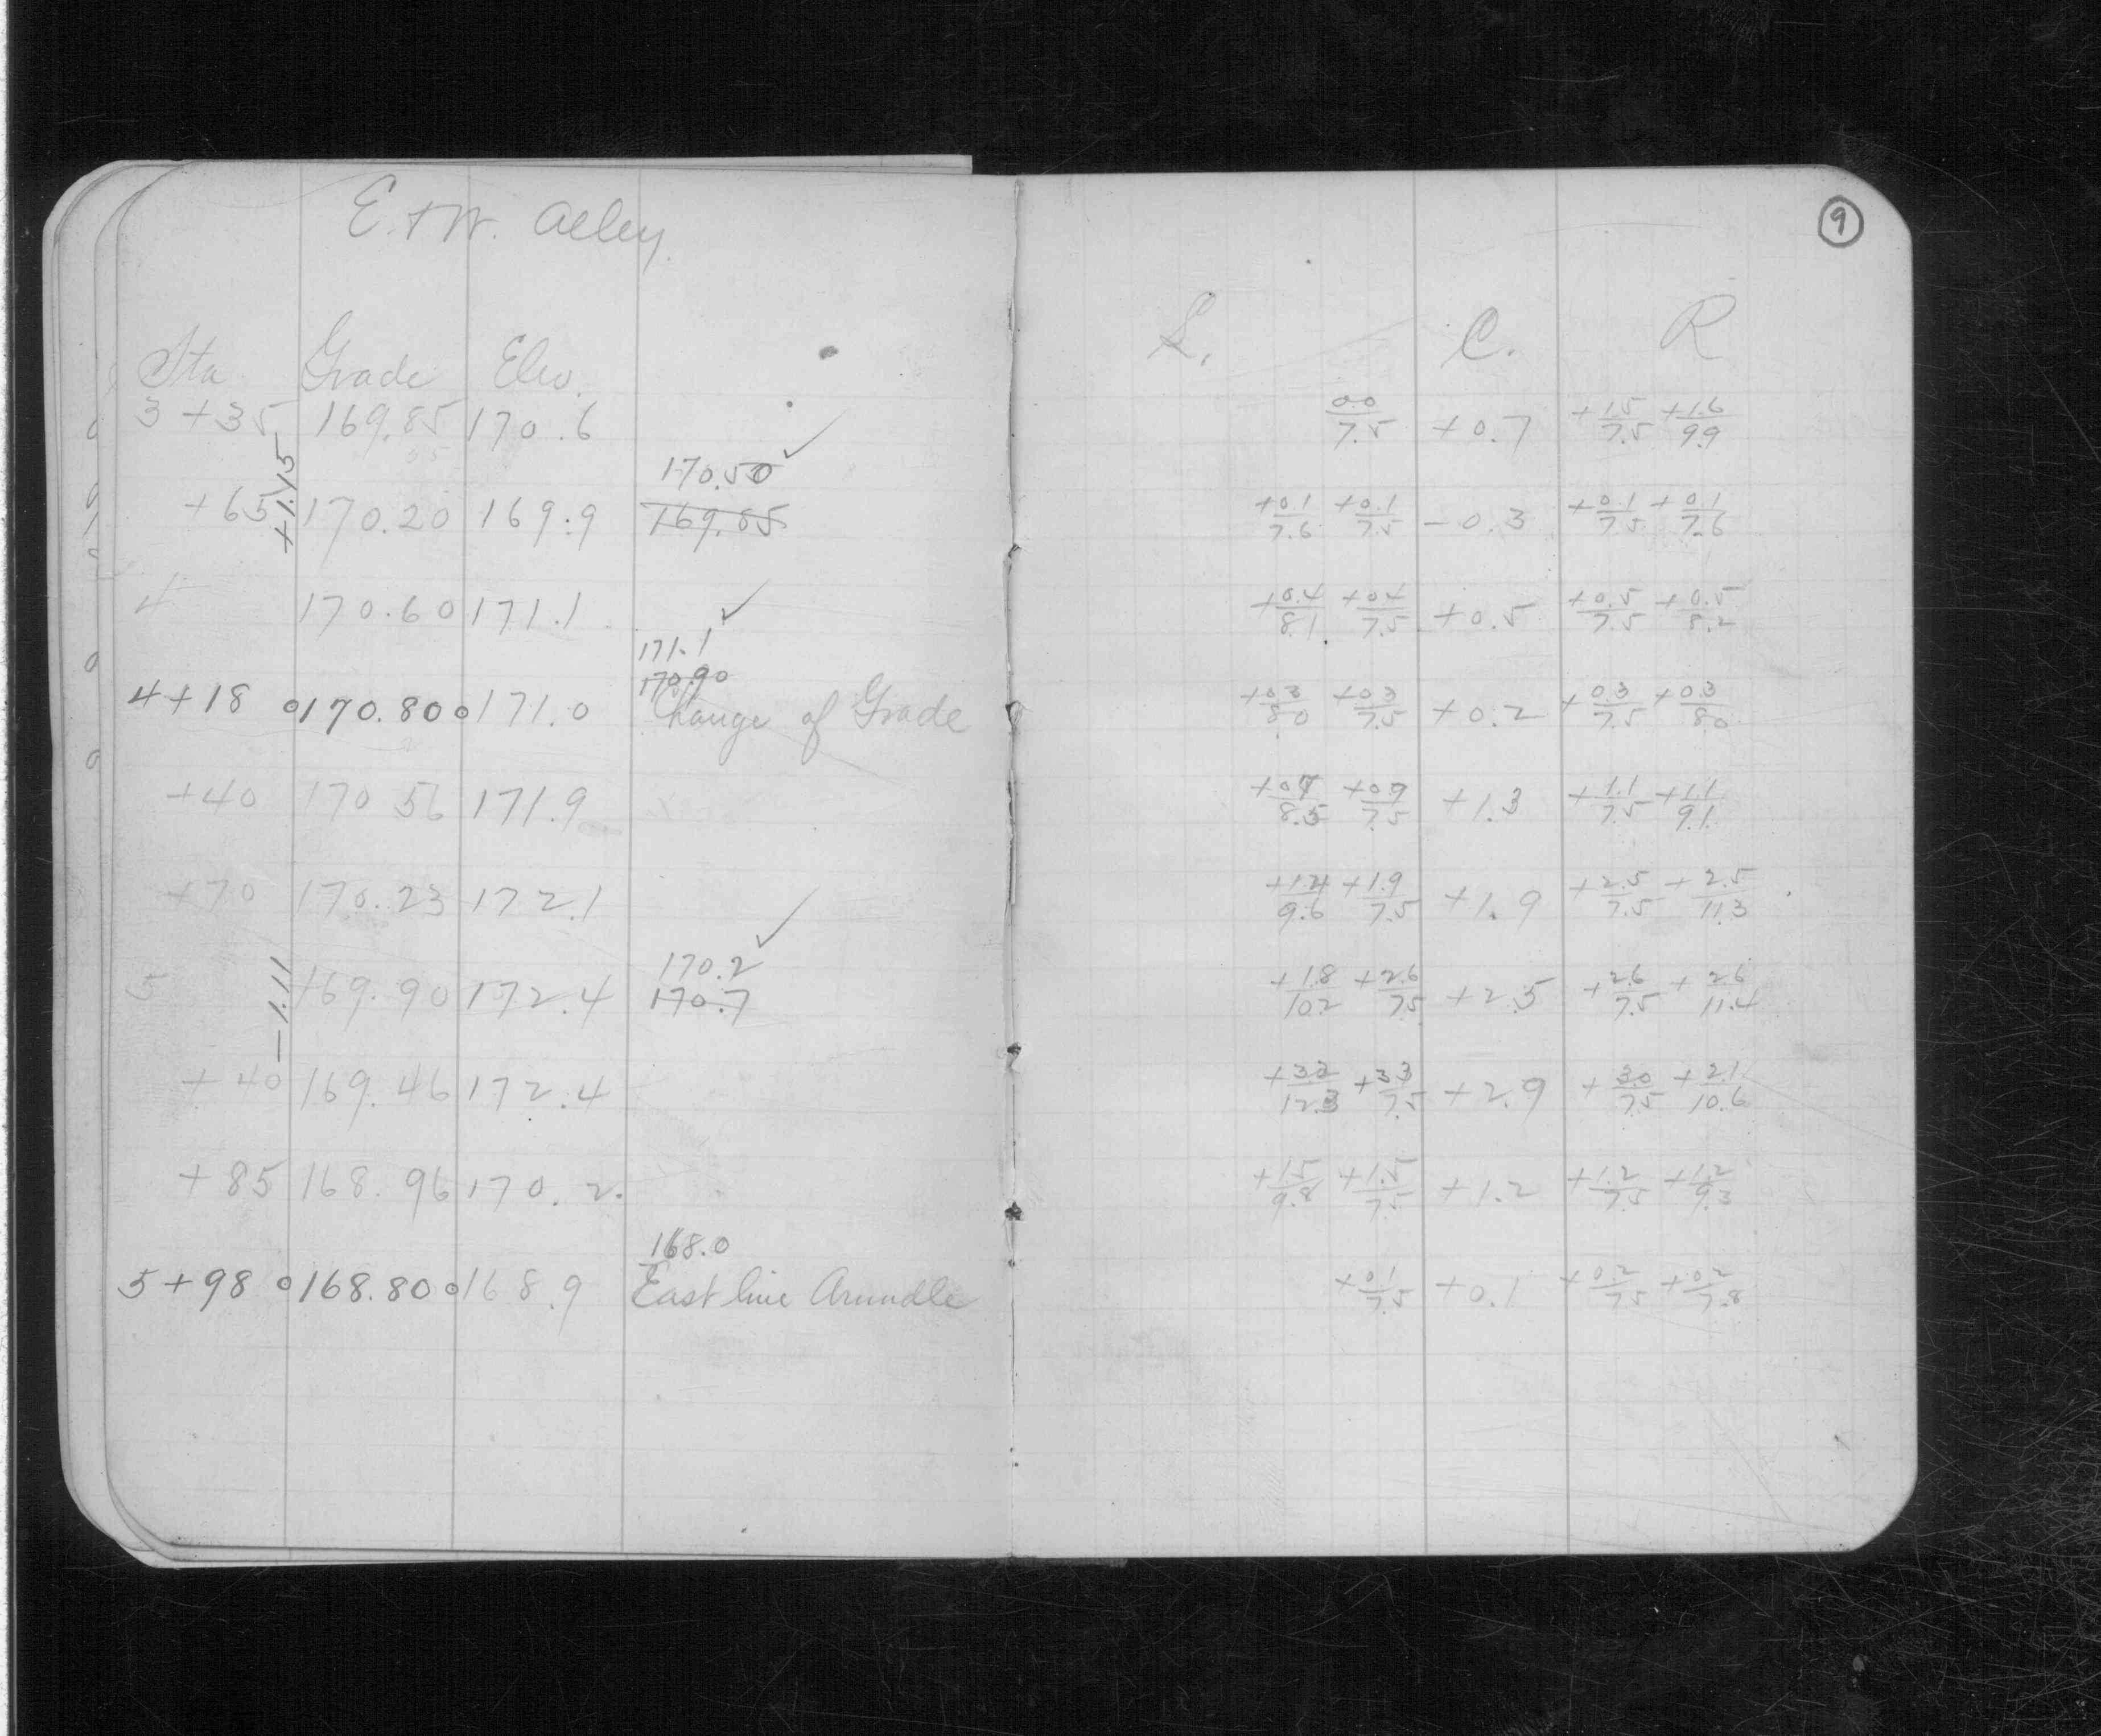 E. + W. Alley.
9
Sta. Grade Elev. L. C. R
3 + 35 169.85 170.6 0.0/7.5 +0.7 +1.5/7.5 +1.6/9.9
+1.15
170.50 ✓
+65 170.20 169.9 169.85 +0.1/7.6 +0.1/7.5 -0.3 +0.1/7.5 +0.1/7.6
4 170.60 171.1 ✓ +0.4/8.1 +0.4/7.5 +0.5 +0.5/7.5 +0.5/8.2
171.1
170.90
4+18 170.80 171.0 Change of Grade +0.3/8.0 +0.3/7.5 +0.2 +0.3/7.5 +0.3/8.0
+40 170.56 171.9 8.5 7.5 +1.3 +1.1/7.5 +1.1/9.1
+70 170.23 172.1 9.6 +1.9/7.5 +1.9 +2.5/7.5 +2.5/11.3
-1.11
170.2 ✓
5 169.90 172.4 170.7 +1.8/10.2 +2.6/7.5 +2.5 +2.6/7.5 +2.6/11.4
+40 169.46 172.4 12.3 +3.3/7.5 +2.9 +3.0/7.5 +2.1/10.6
+85 168.96 170.2 +1.5/9.8 +1.5/7.5 +1.2 +1.2/7.5 +1.2/9.3
168.0
5+98 168.80 168.9 East line Arundle +0.1/7.5 +0.1 +0.2/7.5 +0.2/7.8